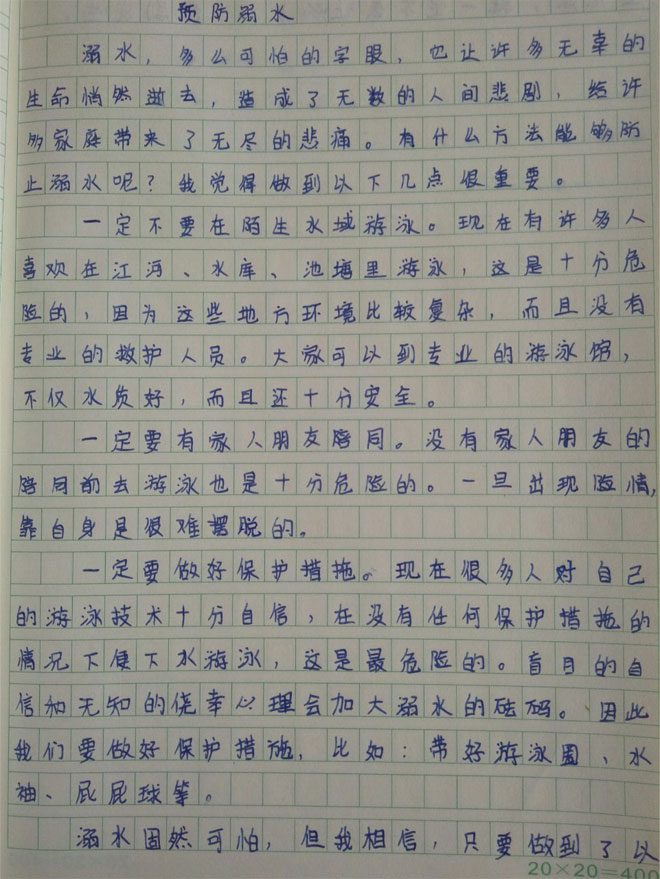 预防溺水
溺水，多么可怕的字眼，也让许多无辜的
生命悄然逝去，造成了无数的人间悲剧，给许
多家庭带来了无尽的悲痛。有什么方法能够防
止溺水呢？我觉得做到以下几点很重要。
一定不要在陌生水域游泳。现在有许多人
喜欢在江河、水库、池塘里游泳，这是十分危
险的，因为这些地方环境比较复杂，而且没有
专业的救护人员。大家可以到专业的游泳馆，
不仅水质好，而且还十分安全。
一定要有家人朋友陪同。没有家人朋友的
陪同前去游泳也是十分危险的。一旦出现险情，
靠自身是很难摆脱的。
一定要做好保护措拖。现在很多人对自己
的游泳技术十分自信，在没有任何保护措拖的
情况下便下水游泳，这是最危险的。盲目的自
信和无知的侥幸心理会加大溺水的砝码。因此
我们要做好保护措施，比如：带好游泳圈、水
袖、屁屁球等。
溺水固然可怕，但我相信，只要做到了以
20×20=400